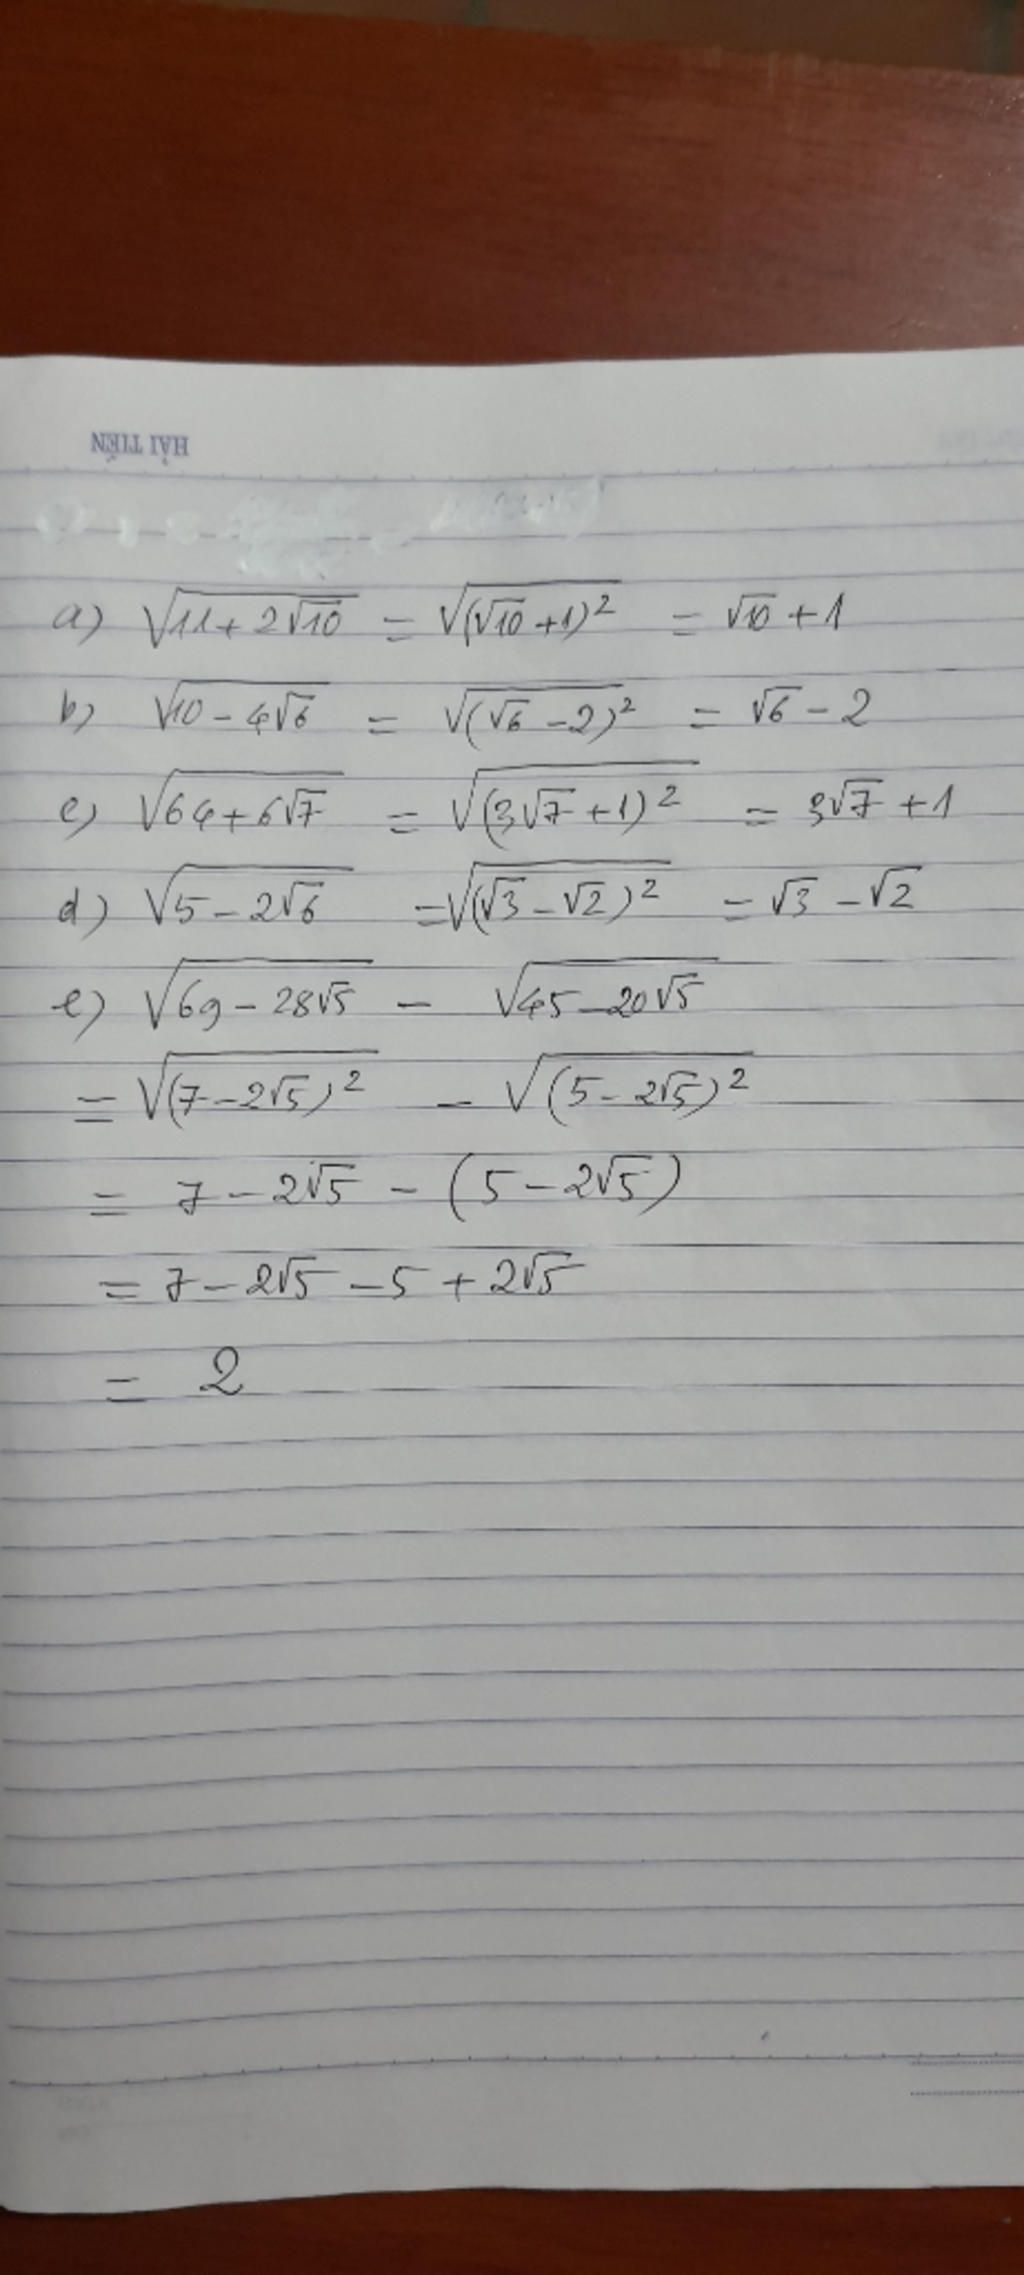 HẢI TIẾN
a) √(11+2√10) = √((√10+1)²) = √10+1
b) √(10-4√6) = √((√6-2)²) = √6-2
c) √(64+6√7) = √((3√7+1)²) = 3√7+1
d) √(5-2√6) = √((√3-√2)²) = √3-√2
e) √(69-28√5) - √(45-20√5)
= √((7-2√5)²) - √((5-2√5)²)
= 7-2√5-(5-2√5)
= 7-2√5-5+2√5
= 2